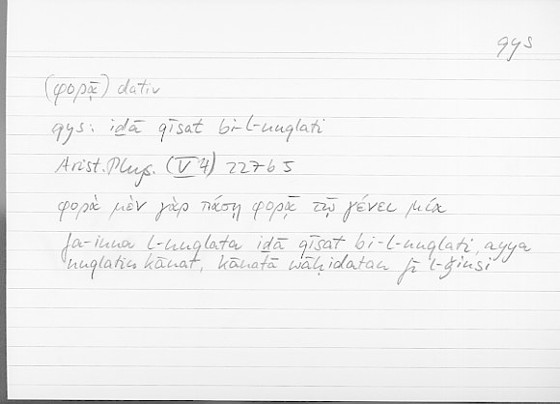 qys
(φορᾷ) dativ
qys: iḏā qīsat bi-l-nuqlati
Arist. Phys. (V 4) 227b5
φορὰ μὲν γὰρ πάσῃ φορᾷ τῷ γένει μία
fa-inna l-nuqlata iḏā qīsat bi-l-nuqlati, ayya
nuqlatin kānat, kānatā wāḥidatan fī l-ǧinsi